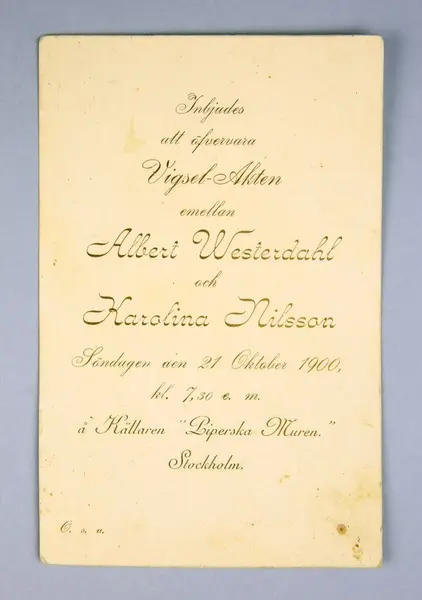 Inbjudes
att öfvervara
Vigsel-Akten
emellan
Albert Westerdahl
och
Karolina Nilsson
Söndagen den 21 Oktober 1900,
kl. 7,30 e. m.
å Källaren "Piperska Muren."
Stockholm.
O. s. a.